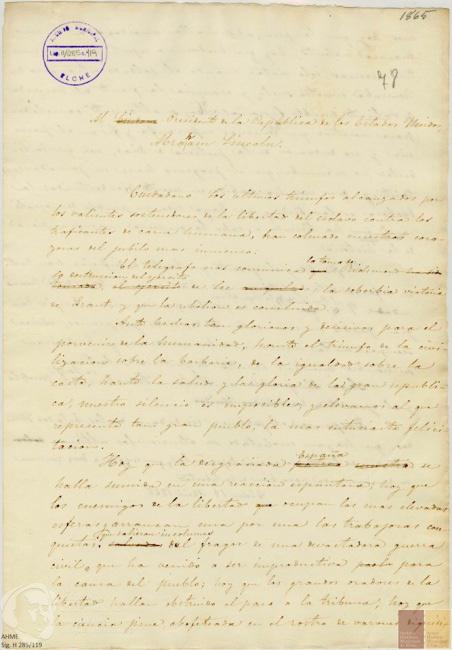 1865
ELCHE
78
Al Presidente de la Republica de los Estados Unidos,
Abraham Lincoln.
Ciudadano: Los ultimos triunfos alcanzados por
los valientes sostenedores de la libertad del esclavo contra los
traficantes de carne humana, han colmado nuestros cora-
zones del jubilo mas inmenso.
El telegrafo nos comunica la toma de Richmon
la destruccion del ejercito de Lee la soberbia victoria
de Grant, y que la rebelion es concluida.
Ante hechos tan gloriosos y decisivos para el
porvenir de la humanidad, ante el triunfo de la civi-
lizacion sobre la barbarie, de la igualdad sobre la
casta, ante la salud y la gloria de la gran republi-
ca, nuestro silencio es imposible, y elevamos al que
representa tan gran pueblo, la mas entusiasta felici-
tacion.
Hoy que la desgraciada España se
halla sumida en una reaccion espantosa; hoy que
los enemigos de la libertad que ocupan las mas elevadas
esferas, arrancan una por una las trabajosas con-
quistas, que salieran incolumes del fragor de una devastadora guerra
civil, que ha venido a ser improductiva para
la causa del pueblo; hoy que los grandes oradores de la
libertad hallan obstruido el paso a la tribuna; hoy que
la ciencia gime abofeteada en el rostro de varones
AHME
Sig. H 285/119